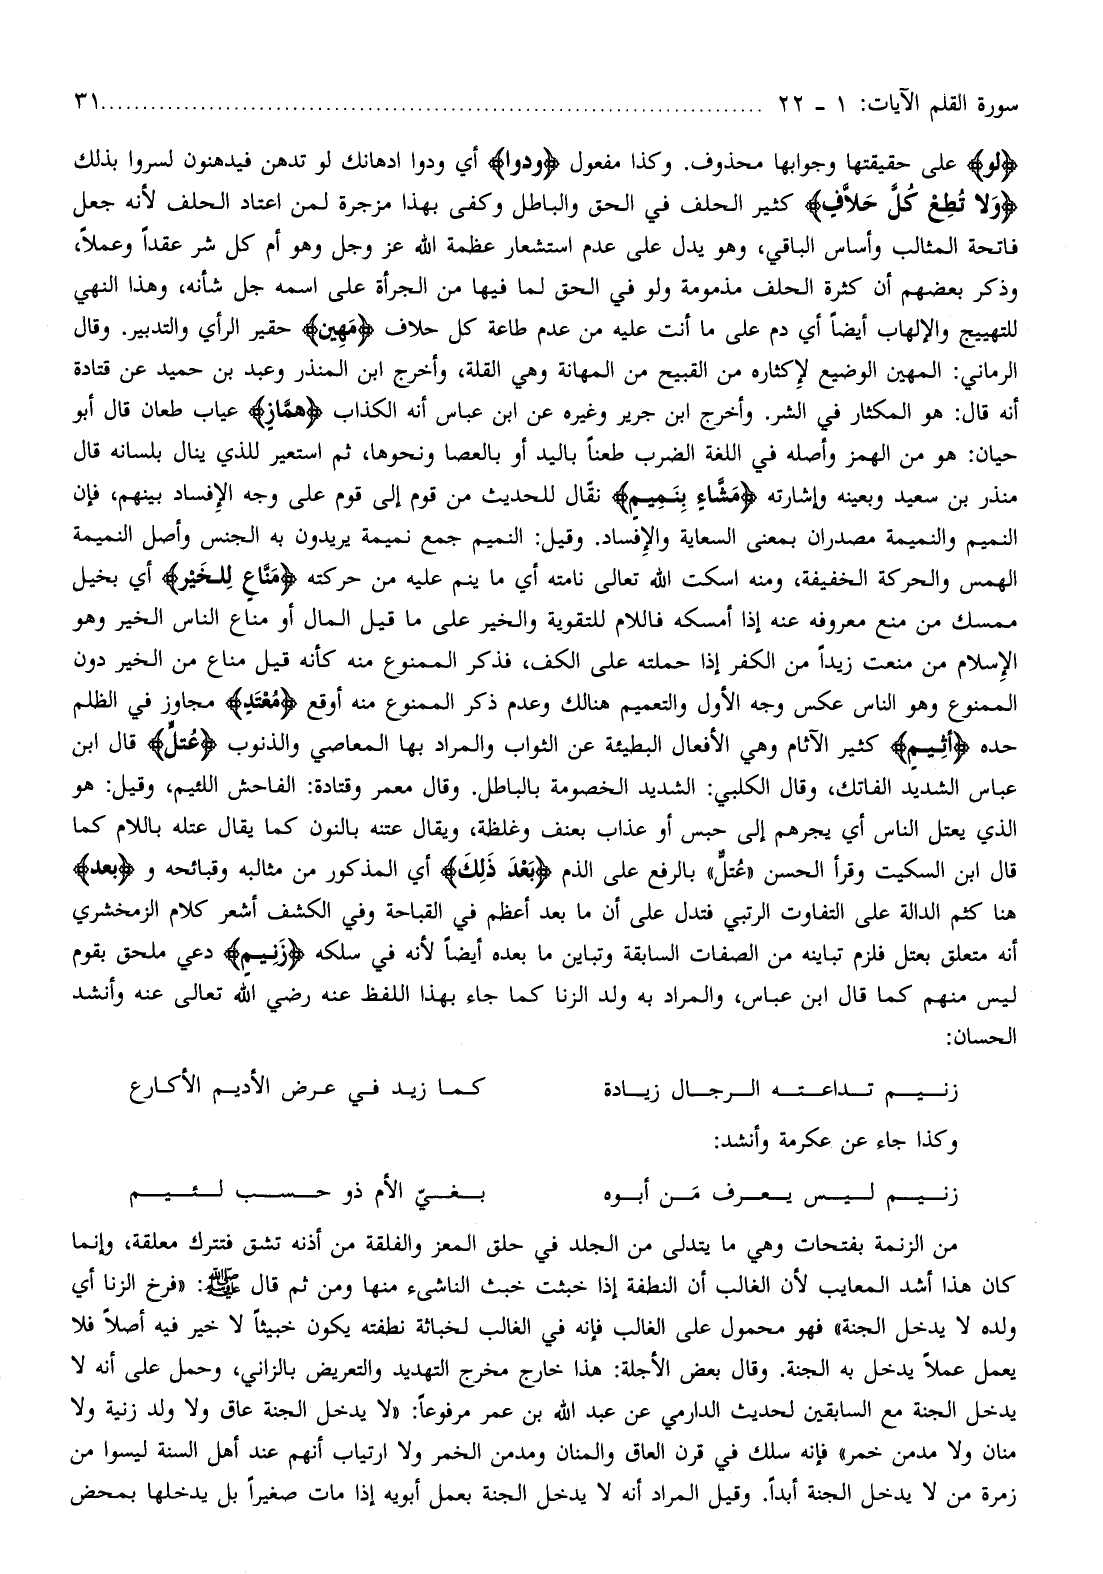 سورة القلم الآيات: ١ ـ ٢٢ ................................................................................ ٣١
﴿لو﴾ على حقيقتها وجوابها محذوف. وكذا مفعول ﴿ودوا﴾ أي ودوا ادهانك لو تدهن فيدهنون لسروا بذلك
﴿وَلا تُطِعْ كُلَّ حَلاَّفٍ﴾ كثير الحلف في الحق والباطل وكفى بهذا مزجرة لمن اعتاد الحلف لأنه جعل
فاتحة المثالب وأساس الباقي، وهو يدل على عدم استشعار عظمة الله عز وجل وهو أم كل شر عقداً وعملاً،
وذكر بعضهم أن كثرة الحلف مذمومة ولو في الحق لما فيها من الجرأة على اسمه جل شأنه، وهذا النهي
للتهييج والإلهاب أيضاً أي دم على ما أنت عليه من عدم طاعة كل حلاف ﴿مَهِين﴾ حقير الرأي والتدبير. وقال
الرماني: المهين الوضيع لإكثاره من القبيح من المهانة وهي القلة، وأخرج ابن المنذر وعبد بن حميد عن قتادة
أنه قال: هو المكثار في الشر. وأخرج ابن جرير وغيره عن ابن عباس أنه الكذاب ﴿همَّازٍ﴾ عياب طعان قال أبو
حيان: هو من الهمز وأصله في اللغة الضرب طعناً باليد أو بالعصا ونحوها، ثم استعير للذي ينال بلسانه قال
منذر بن سعيد وبعينه وإشارته ﴿مَشَّاءٍ بِنَمِيمٍ﴾ نقّال للحديث من قوم إلى قوم على وجه الإفساد بينهم، فإن
النميم والنميمة مصدران بمعنى السعاية والإفساد. وقيل: النميم جمع نميمة يريدون به الجنس وأصل النميمة
الهمس والحركة الخفيفة، ومنه اسكت الله تعالى نامته أي ما ينم عليه من حركته ﴿مَنَّاعٍ لِلخَيْرِ﴾ أي بخيل
ممسك من منع معروفه عنه إذا أمسكه فاللام للتقوية والخير على ما قيل المال أو مناع الناس الخير وهو
الإسلام من منعت زيداً من الكفر إذا حملته على الكف، فذكر الممنوع منه كأنه قيل مناع من الخير دون
الممنوع وهو الناس عكس وجه الأول والتعميم هنالك وعدم ذكر الممنوع منه أوقع ﴿مُعْتَدٍ﴾ مجاوز في الظلم
حده ﴿أثِيمٍ﴾ كثير الآثام وهي الأفعال البطيئة عن الثواب والمراد بها المعاصي والذنوب ﴿عُتلٍّ﴾ قال ابن
عباس الشديد الفاتك، وقال الكلبي: الشديد الخصومة بالباطل. وقال معمر وقتادة: الفاحش اللئيم، وقيل: هو
الذي يعتل الناس أي يجرهم إلى حبس أو عذاب بعنف وغلظة، ويقال عتنه بالنون كما يقال عتله باللام كما
قال ابن السكيت وقرأ الحسن «عُتلٌّ» بالرفع على الذم ﴿بَعْدَ ذَلِكَ﴾ أي المذكور من مثالبه وقبائحه و ﴿بعد﴾
هنا كثم الدالة على التفاوت الرتبي فتدل على أن ما بعد أعظم في القباحة وفي الكشف أشعر كلام الزمخشري
أنه متعلق بعتل فلزم تباينه من الصفات السابقة وتباين ما بعده أيضاً لأنه في سلكه ﴿زَنِيمٍ﴾ دعي ملحق بقوم
ليس منهم كما قال ابن عباس، والمراد به ولد الزنا كما جاء بهذا اللفظ عنه رضي الله تعالى عنه وأنشد
الحسان:
زنيم تداعته الرجال زيادة كما زيد في عرض الأديم الأكارع
وكذا جاء عن عكرمة وأنشد:
زنيم ليس يعرف مَن أبوه بغيّ الأم ذو حسب لئيم
من الزنمة بفتحات وهي ما يتدلى من الجلد في حلق المعز والفلقة من أذنه تشق فتترك معلقة، وإنما
كان هذا أشد المعايب لأن الغالب أن النطفة إذا خبثت خبث الناشىء منها ومن ثم قال ﷺ: «فرخ الزنا أي
ولده لا يدخل الجنة» فهو محمول على الغالب فإنه في الغالب لخباثة نطفته يكون خبيثاً لا خير فيه أصلاً فلا
يعمل عملاً يدخل به الجنة. وقال بعض الأجلة: هذا خارج مخرج التهديد والتعريض بالزاني، وحمل على أنه لا
يدخل الجنة مع السابقين لحديث الدارمي عن عبد الله بن عمر مرفوعاً: «لا يدخل الجنة عاق ولا ولد زنية ولا
منان ولا مدمن خمر» فإنه سلك في قرن العاق والمنان ومدمن الخمر ولا ارتياب أنهم عند أهل السنة ليسوا من
زمرة من لا يدخل الجنة أبداً. وقيل المراد أنه لا يدخل الجنة بعمل أبويه إذا مات صغيراً بل يدخلها بمحض